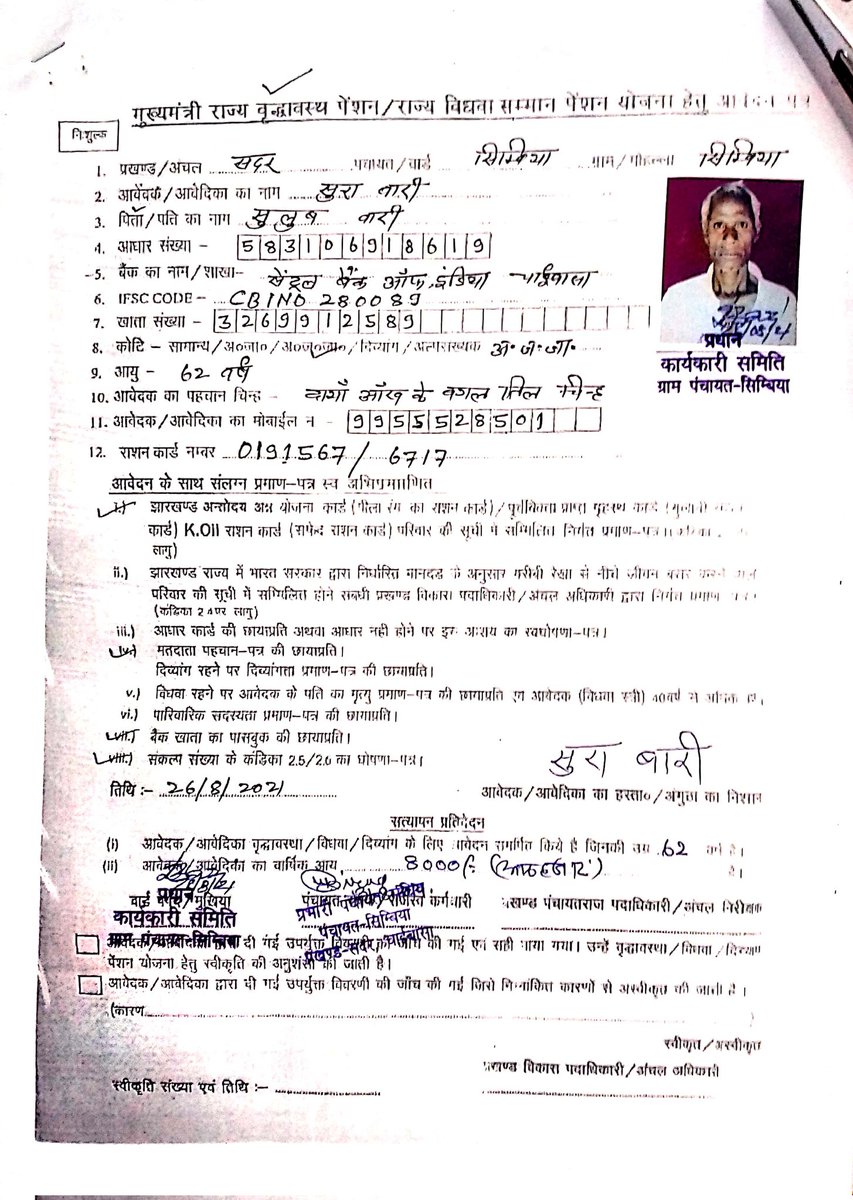 मुख्यमंत्री राज्य वृद्धावस्थ पेंशन/राज्य विधवा सम्मान पेंशन योजना हेतु आवेदन पत्र
निःशुल्क
1. प्रखण्ड/अंचल सदर पंचायत/वार्ड सिम्बिया ग्राम/मोहल्ला सिम्बिया
2. आवेदक/आवेदिका का नाम सुरा बारी
3. पिता/पति का नाम सुलुब बारी
4. आधार संख्या – 583106918619
5. बैंक का नाम/शाखा– सेंट्रल बैंक ऑफ इंडिया चाईबासा
6. IFSC CODE – CBIN0280089
7. खाता संख्या – 3269912589
8. कोटि – सामान्य/अ०जा०/अ०ज०जा०/दिव्यांग/अल्पसंख्यक अ.ज.जा.
प्रधान
कार्यकारी समिति
ग्राम पंचायत-सिम्बिया
9. आयु – 62 वर्ष
10. आवेदक का पहचान चिन्ह – आँख के बगल तिल चिन्ह
11. आवेदक/आवेदिका का मोबाईल न – 9955528501
12. राशन कार्ड नम्बर 0191567/6717
आवेदन के साथ संलग्न प्रमाण–पत्र स्व अभिप्रमाणित
i.) झारखण्ड अन्तोदय अन्न योजना कार्ड (पीला रंग का राशन कार्ड)/पूर्विकता प्राप्त गृहस्थ कार्ड (गुलाबी
कार्ड) K.Oil राशन कार्ड (सफेद राशन कार्ड) परिवार की सूची में सम्मिलित निर्गत प्रमाण–पत्र।
लागु)
ii.) झारखण्ड राज्य में भारत सरकार द्वारा निर्धारित मानदंड के अनुसार गरीबी रेखा से नीचे जीवन बसर करने
परिवार की सूची में सम्मिलित होने संबधी प्रखण्ड विकास पदाधिकारी/अंचल अधिकारी द्वारा निर्गत प्रमाण
(कंडिका 2.4पर लागु)
iii.) आधार कार्ड की छायाप्रति अथवा आधार नही होने पर इस आशय का स्वघोषणा–पत्र।
iv.) मतदाता पहचान–पत्र की छायाप्रति।
दिव्यांग रहने पर दिव्यांगता प्रमाण–पत्र की छायाप्रति।
v.) विधवा रहने पर आवेदक के पति का मृत्यु प्रमाण–पत्र की छायाप्रति एवं आवेदक (विधवा स्त्री) 40वर्ष से अधिक हो,
vi.) पारिवारिक सदस्यता प्रमाण–पत्र की छायाप्रति।
vii.) बैंक खाता का पासबुक की छायाप्रति।
viii.) संकल्प संख्या के कंडिका 2.5/2.6 का घोषणा–पत्र।
सुरा बारी
तिथि :– 26/8/2021
आवेदक/आवेदिका का हस्ता०/अंगुठा का निशान
सत्यापन प्रतिवेदन
(i) आवेदक/आवेदिका वृद्धावस्था/विधवा/दिव्यांग के लिए आवेदन समर्पित किये है जिनकी उम्र 62 वर्ष है।
(ii) आवेदक/आवेदिका का वार्षिक आय 8000/- (आठ हजार) है।
प्रधान
कार्यकारी समिति
ग्राम पंचायत-सिम्बिया
पंचायत-सिम्बिया
प्रखण्ड-सदर, चाईबासा
प्रखण्ड पंचायतराज पदाधिकारी/अंचल निरीक्षक
आवेदक दी गई उपर्युक्त विवरणी की जाँच की गई एवं सही पाया गया। उन्हें वृद्धावस्था/विधवा/दिव्यांग
पेंशन योजना हेतु स्वीकृति की अनुशंसा की जाती है।
आवेदक/आवेदिका द्वारा दी गई उपर्युक्त विवरणी की जाँच की गई जिसे निम्नांकित कारणों से अस्वीकृत की जाती है।
(कारण )
स्वीकृत/अस्वीकृत
प्रखण्ड विकास पदाधिकारी/अंचल अधिकारी
स्वीकृति संख्या एवं तिथि :–